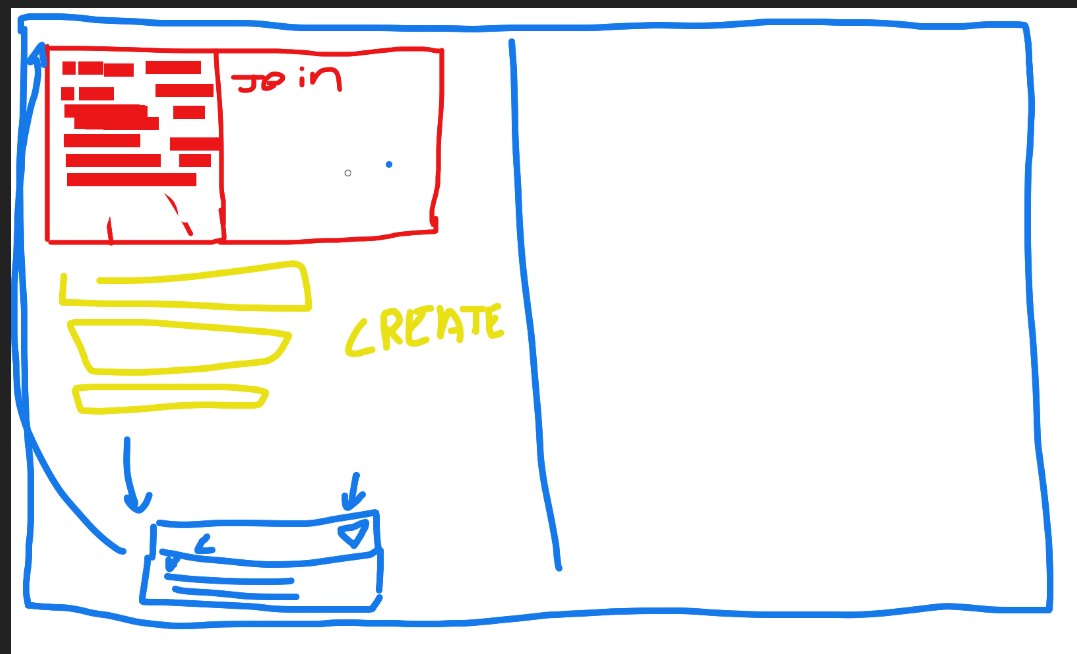 Join
CREATE